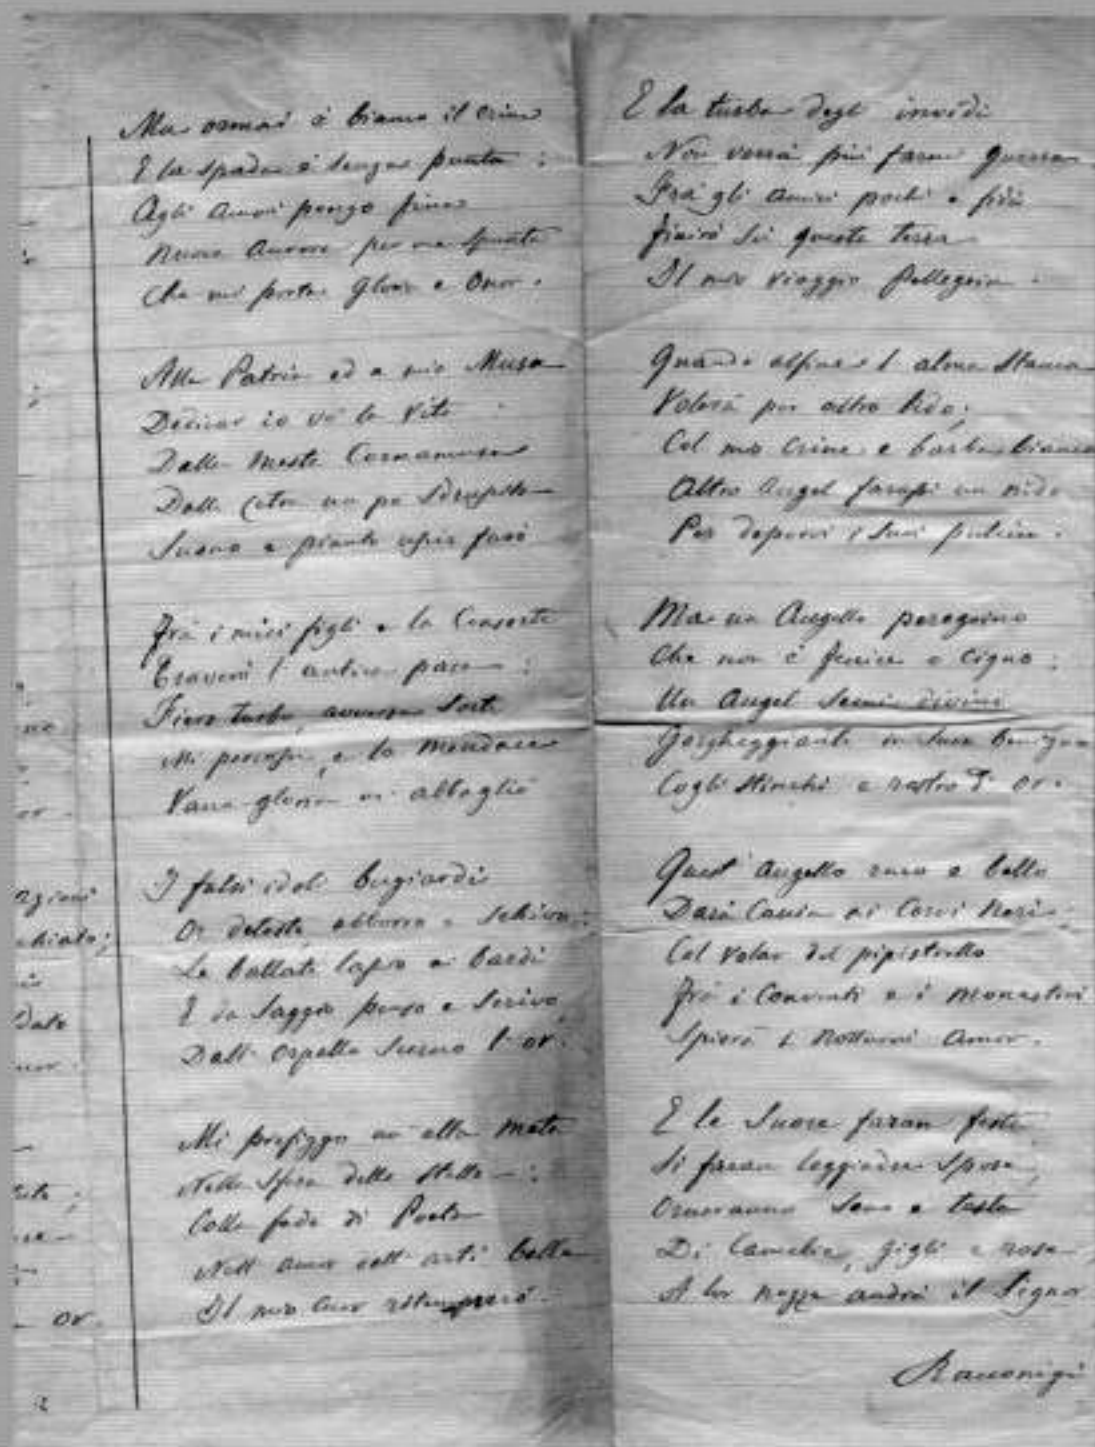 Ma ormai è bianco il crine
E la spada è senza punta :
Agli amori pongo fine
Nuova aurora per me spunta
Che mi porta gloria e onor.
Alla Patria ed a mia Musa
Dedicar io vò la vita
Dalla mesta Cornamusa
Dalla Cetra un po sdrusita
Suono e pianto uscir farò
Frà i miei figli e la Consorte
Troverò l'antica pace :
Fiero turbo, avversa sorte
Mi percosse, e la mendace
Vana gloria m'abbagliò
I falsi idoli bugiardi
Or detesto, abborro e schivo:
Le ballate lascio ai bardi
E da saggio penso e scrivo,
Dall'orpello scerno l'or.
Mi prefiggo un'alta meta
Nella sfera delle stelle :
Colla fede di Poeta
Nell'amor dell'arti belle
Il mio cuor ritemprerò.
E la turba degl'invidi
Non verrà più farmi guerra
Frà gli amici pochi e fidi
Finirò sù questa terra
Il mio viaggio Pellegrin.
Quando alfine l'alma stanca
Volerà per altro lido;
Col mio crine e barba bianca
Altro Augel farassi un nido
Per deporvi i suoi pulcin.
Ma un Augello peregrino
Che non è fenice o cigno :
Un Augel semi divino
Gorgheggiante in suon benigno
Cogli stinchi e rostro d'or.
Quest'augello raro e bello
Darà Caccia ai Corvi neri
Col volar del pipistrello
Frà i Conventi e i monasteri
Spierà i notturni amor.
E le Suore faran festa
Si faran leggiadre spose,
Orneranno seno e testa
Di Camelie, gigli e rose
A lor nozze andrà il Signor
Racconigi
azioni
chiato;
dato
or.